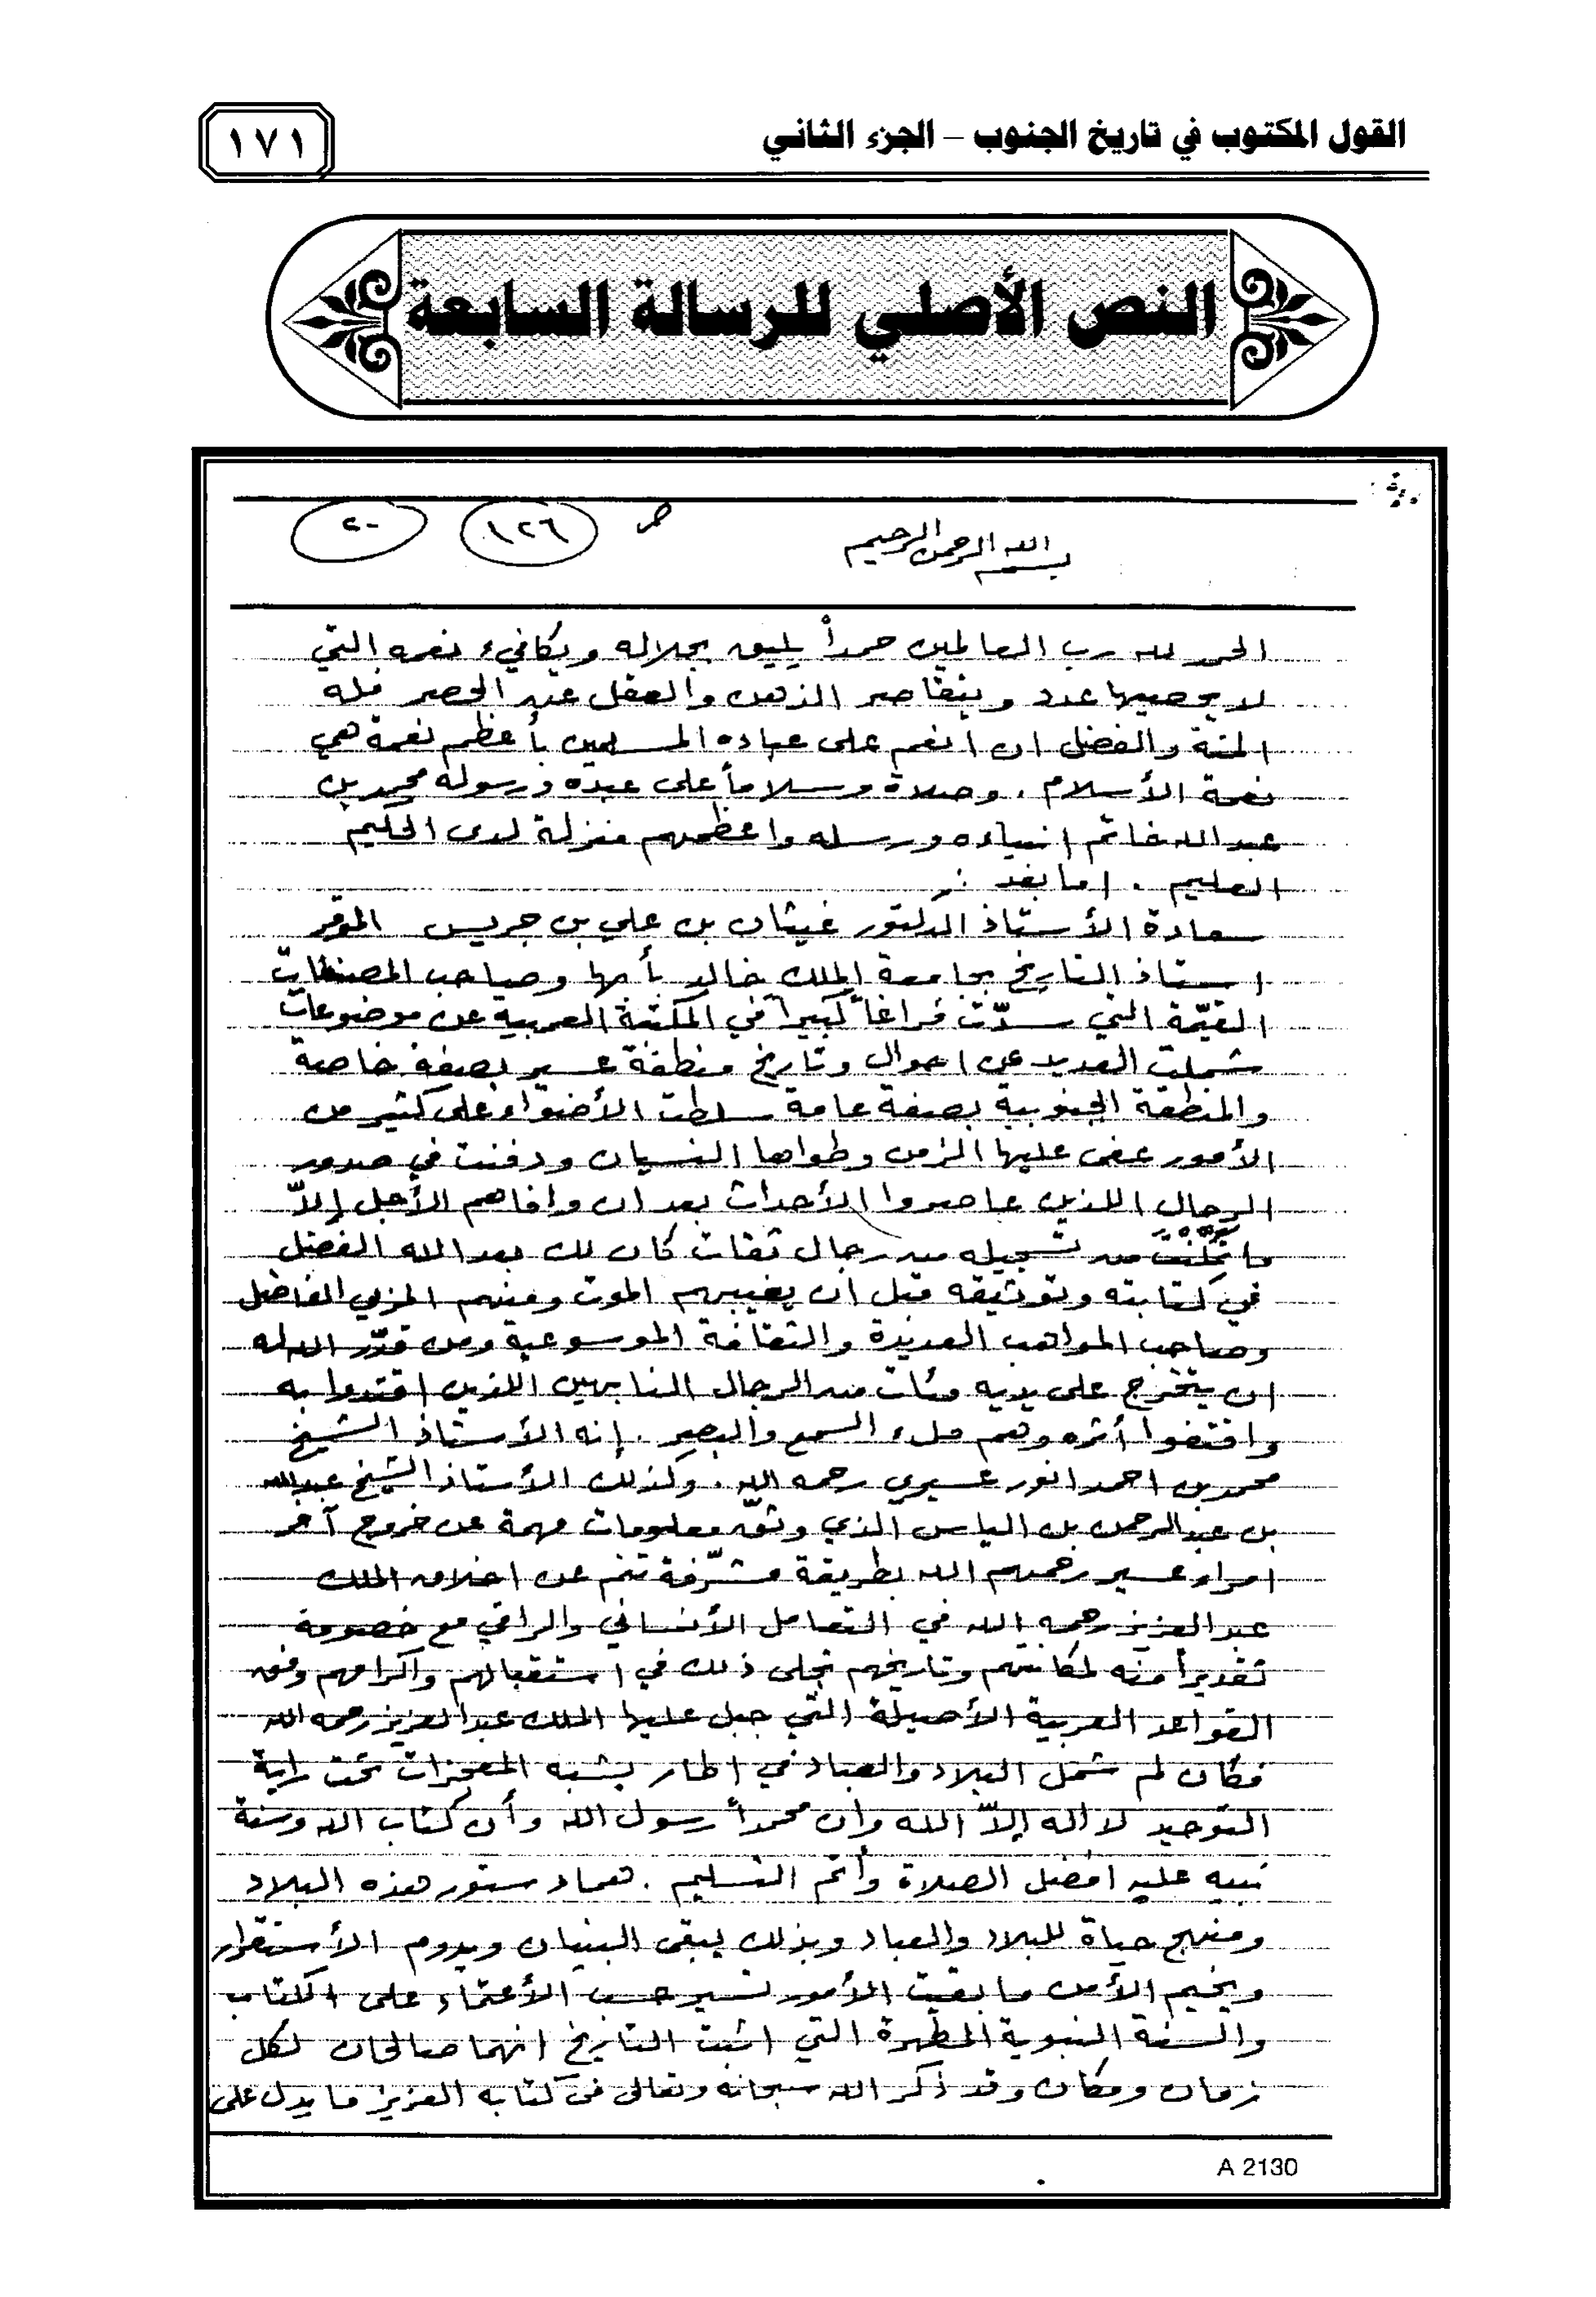 القول المكتوب في تاريخ الجنوب – الجزء الثاني
١٧١
النص الأصلي للرسالة السابعة
بسم الله الرحمن الرحيم
ص ١٢٦ ٢٠
الحمد لله رب العالمين حمداً يليق بجلاله ويكافيء نعمه التي
لا يحصيها عدد ويتقاصر الذهن والعقل عند الحصر فله
المنة والفضل ان انعم على عباده المسلمين بأعظم نعمة هي
نعمة الأسلام . وصلاة وسلاماً على عبده ورسوله محمد بن
عبدالله خاتم انبياءه ورسله واعظمهم منزلة لدى الحليم
العليم . اما بعد :ـ
سعادة الأستاذ الدكتور غيثان بن علي بن جريس الموقر
استاذ التاريخ بجامعة الملك خالد بأبها وصاحب المصنفات
القيّمة التي سدّت فراغاً كبيراً في المكتبة العربيه عن موضوعات
شملت العديد عن احوال وتاريخ منطقة عسير بصفة خاصة
والمنطقة الجنوبية بصفة عامة سلطت الأضواء على كثير من
الأمور عفى عليها الزمن وطواها النسيان ودفنت في صدور
الرجال اللذين عاصروا الأحداث بعد ان وافاهم الأجل إلاّ
ما تمكّنت من تسجيله من رجال ثقات كان لك بعد الله الفضل
في كتابته وتوثيقه قبل ان يغيبهم الموت ومنهم المربي الفاضل
وصاحب المواهب العديدة والثقافة الموسوعية ومن قدّر الله له
ان يتخرج على يديه مئات من الرجال النابهين اللذين اقتدوا به
واقتفوا أثره وهم ملء السمع والبصر . إنه الأستاذ الشيخ
محمد بن احمد انور عسيري رحمه الله . وكذلك الأستاذ الشيخ عبدالله
بن عبدالرحمن بن الياس الذي وثّق معلومات مهمة عن خروج آخر
امراء عسير رحمهم الله بطريقة مشرّفة تنم عن اخلاق الملك
عبدالعزيز رحمه الله في التعامل الأنساني والراقي مع خصومه
تقديراً منه لمكانتهم وتاريخهم تجلى ذلك في استقبالهم واكرامهم وفق
القواعد العربية الأصيلة التي جبل عليها الملك عبدالعزيز رحمه الله
فكان لم شمل البلاد والعباد في اطار يشبه المعجزات تحت راية
التوحيد لا اله إلاّ الله وان محمداً رسول الله وأن كتاب الله وسنة
نبيه عليه افضل الصلاة وأتم التسليم . هما دستور هذه البلاد
ومنهج حياة للبلاد والعباد وبذلك يبقى البنيان ويدوم الأستقرار
ويخيم الأمن ما بقيت الأمور تسير حسب الأعتماد على الكتاب
والسنة النبوية المطهرة التي اثبت التاريخ انهما صالحان لكل
زمان ومكان وقد ذكر الله سبحانه وتعالى في كتابه العزيز ما يدل على
A 2130